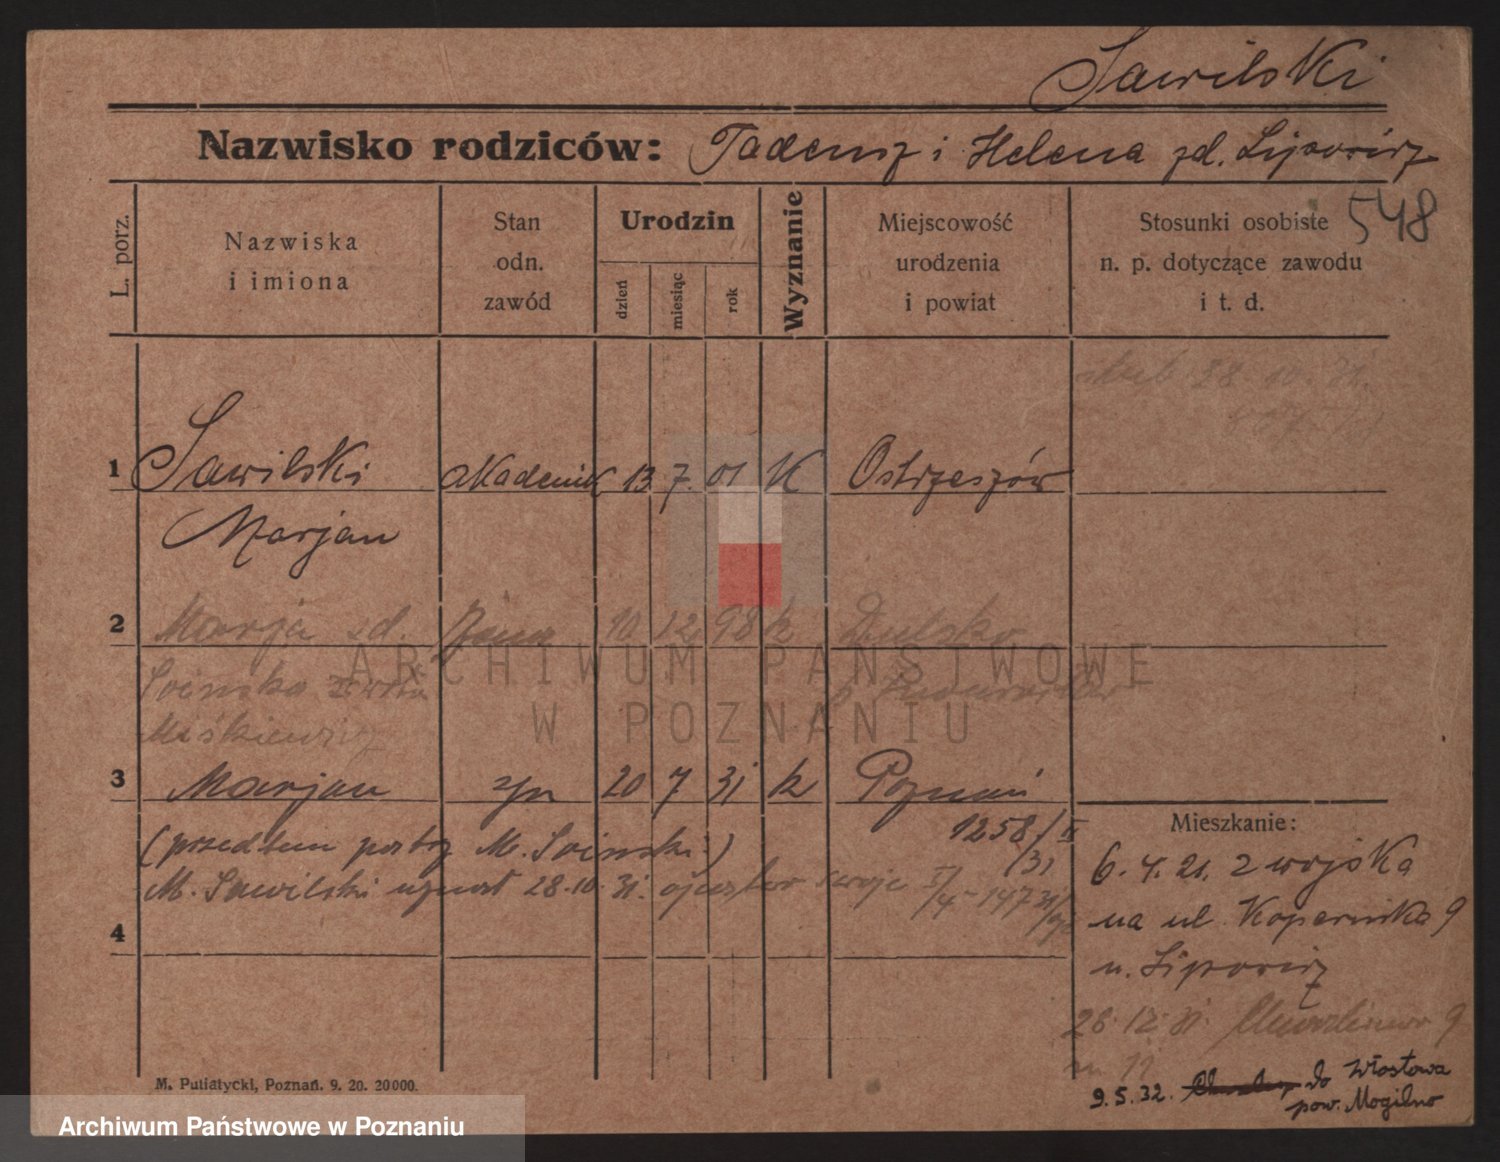 Sawilski
Nazwisko rodziców: Tadeusz i Helena zd. Lipowicz
548
L. porz.
Nazwiska
i imiona
Stan
odn.
zawód
Urodzin
dzień
miesiąc
rok
Wyznanie
Miejscowość
urodzenia
i powiat
Stosunki osobiste
n. p. dotyczące zawodu
i t. d.
28. 10. 31.
1 Sawilski akademik 13 7. 01 K Ostrzeszów
Marjan
2 Marja zd. żona 10 12 98 k Dulsko
Soinska
Miśkiewicz
3 Marjan syn 20 7 31 k Poznań
1258/II
/31
(przedtem M. Soinski)
M. Sawilski uznał 28.10.31. ojcostwo swoje
4
Mieszkanie:
6. 4. 21. z wojska
na ul. Kopernika 9
u. Lipowicz
28. 12. 31. 9
9. 5. 32. do Włostowa
pow. Mogilno
M. Putiatycki, Poznań. 9. 20. 20000.
ARCHIWUM PAŃSTWOWE
W POZNANIU
Archiwum Państwowe w Poznaniu